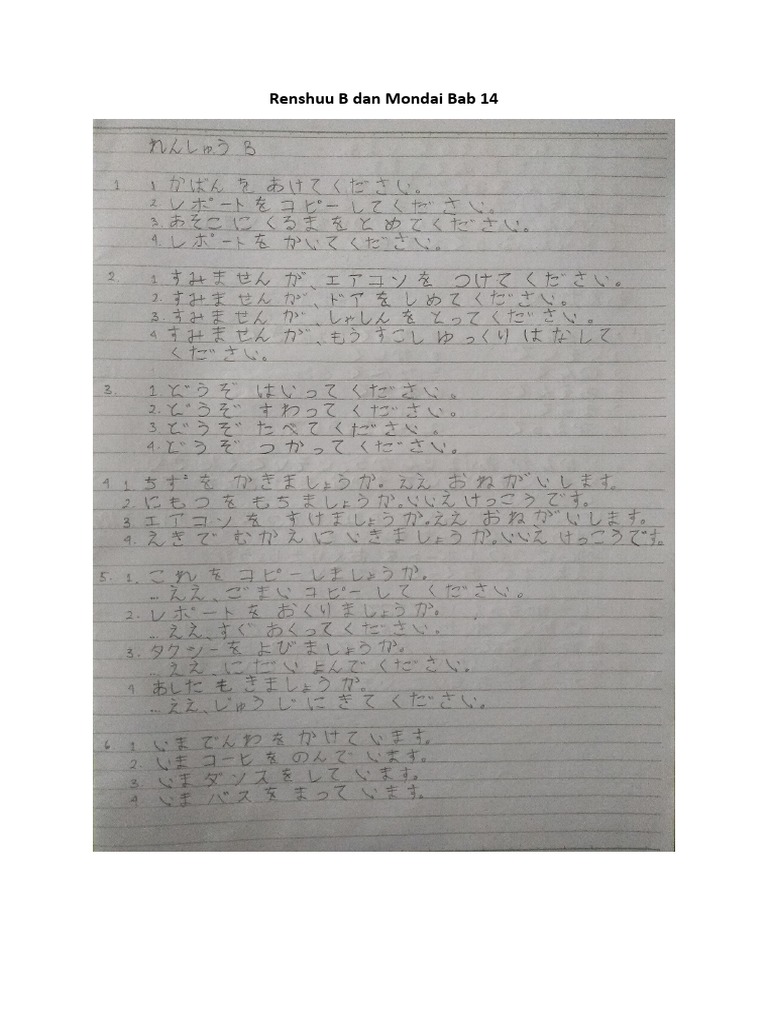 Renshuu B dan Mondai Bab 14
れんしゅう B
1 1 かばん を あけて ください。
2. レポートを コピーして ください。
3. あそこ に くるま を とめて ください。
4. レポートを かいて ください。
2. 1. すみません が、エアコン を つけて ください。
2. すみません が、ドア を しめて ください。
3. すみません が、しゃしん を とって ください。
4 すみません が、もう すこし ゆっくり はなして
ください。
3. 1. どうぞ はいって ください。
2. どうぞ すわって ください。
3 どうぞ たべて ください。
4. どうぞ つかって ください。
4 1 ちず を かきましょうか。ええ おねがいします。
2. にもつ を もちましょうか。いいえ けっこうです。
3 エアコン を すけましょうか。ええ おねがいします。
4. えきで むかえ に いきましょうか。いいえ けっこうです。
5. 1. これ を コピーしましょうか。
... ええ、ごまい コピー して ください。
2. レポート を おくりましょうか。
... ええ、すぐ おくって ください。
3. タクシーを よびましょうか。
... ええ、にだい よんで ください。
4 あした も きましょうか。
... ええ、じゅうじ に きて ください。
6. 1 いま でんわ を かけて います。
2. いま コーヒ を のんで います。
3 いま ダンス を して います。
4 いま バス を まって います。